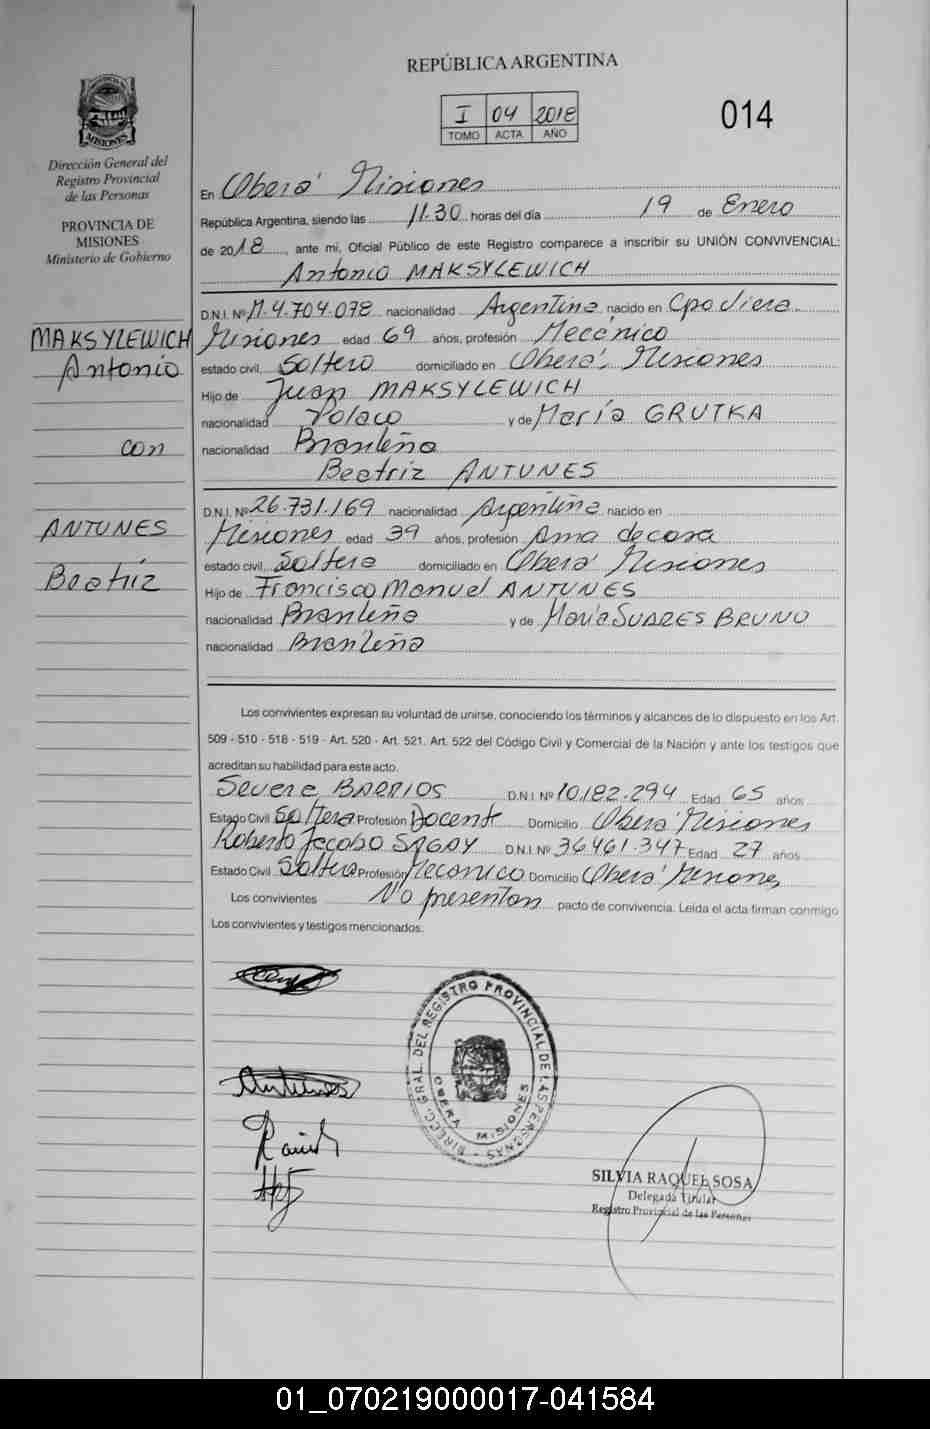 REPÚBLICA ARGENTINA
I 04 2018
TOMO ACTA AÑO
014
PROVINCIA DE MISIONES
Dirección General del
Registro Provincial
de las Personas
PROVINCIA DE
MISIONES
Ministerio de Gobierno
MAKSYLEWICH
Antonio
con
ANTUNES
Beatriz
En Oberá Misiones
República Argentina, siendo las 11.30 horas del día 19 de Enero
de 2018, ante mí, Oficial Público de este Registro comparece a inscribir su UNIÓN CONVIVENCIAL:
Antonio MAKSYLEWICH
D.N.I. Nº M.4.704.078 nacionalidad Argentina nacido en Cpo Viera
Misiones edad 69 años, profesión Mecánico
estado civil, Soltero domiciliado en Oberá, Misiones
Hijo de Juan MAKSYLEWICH
nacionalidad Polaco y de María GRUTKA
nacionalidad Brasileña
Beatriz ANTUNES
D.N.I. Nº 26.731.169 nacionalidad Argentina nacido en
Misiones edad 39 años, profesión Ama de casa
estado civil, Soltera domiciliado en Oberá Misiones
Hijo de Francisco Manuel ANTUNES
nacionalidad Brasileña y de María SUARES BRUNO
nacionalidad Brasileña
Los convivientes expresan su voluntad de unirse, conociendo los términos y alcances de lo dispuesto en los Art.
509 - 510 - 518 - 519 - Art. 520 - Art. 521. Art. 522 del Código Civil y Comercial de la Nación y ante los testigos que
acreditan su habilidad para este acto.
Severa BARRIOS D.N.I. Nº 10.182.294 Edad 65 años
Estado Civil Soltera Profesión Docente Domicilio Oberá Misiones
Roberto Jacobo SAGAY D.N.I. Nº 36.461.347 Edad 27 años
Estado Civil Soltero Profesión Mecánico Domicilio Oberá Misiones
Los convivientes No presentan pacto de convivencia. Leída el acta firman conmigo
Los convivientes y testigos mencionados.
Antunes
DIREC. GRAL. DEL REGISTRO PROVINCIAL DE LAS PERSONAS
OBERA MISIONES
SILVIA RAQUEL SOSA
Delegada Titular
Registro Provincial de las Personas
01_070219000017-041584